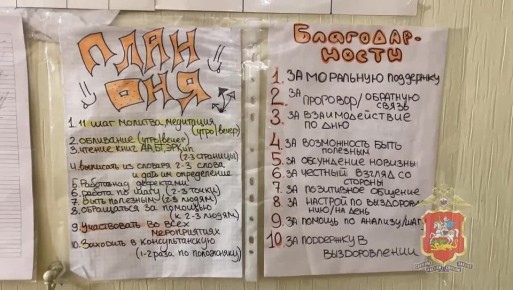 ПЛАН
ДНЯ
1. 11 шаг молитва, медитация
(утро/вечер)
2. обливание (утро/вечер)
3. чтение книг АА, БГ, ЭРК ип
(2-3 страницы)
4. выписать из словаря 2-3 слова
и дать им определение
5. Работа над дефектами
6. работа по шагу (2-3 точки)
7. Быть полезным (2-3 людям)
8. обращаться за помощью
(к 2-3 людям)
9. Участвовать во всех
мероприятиях
10. Заходить в консультанскую
(1-2 раза по
БЛАГОДАР-
НОСТИ
1. ЗА МОРАЛЬНУЮ ПОДДЕРЖКУ
2. ЗА
ПРОГОВОР/ОБРАТНУЮ
СВЯЗЬ
3. ЗА ВЗАИМОДЕЙСТВИЕ
ПО ДНЮ
4. ЗА ВОЗМОЖНОСТЬ БЫТЬ
ПОЛЕЗНЫМ
5. ЗА ОБСУЖДЕНИЕ НОВИЗНЫ
6. ЗА ЧЕСТНЫЙ ВЗГЛЯД СО
СТОРОНЫ
7. ЗА ПОЗИТИВНОЕ ОБЩЕНИЕ
8 ЗА НАСТРОЙ ПО ВЫЗДОРОВ
НИЮ/НА ДЕНЬ
9. ЗА ПОМОЩЬ ПО АНАЛИЗУ/ШАГ
10 ЗА ПОДДЕРЖКУ В
ВЫЗДОРОВЛЕНИИ